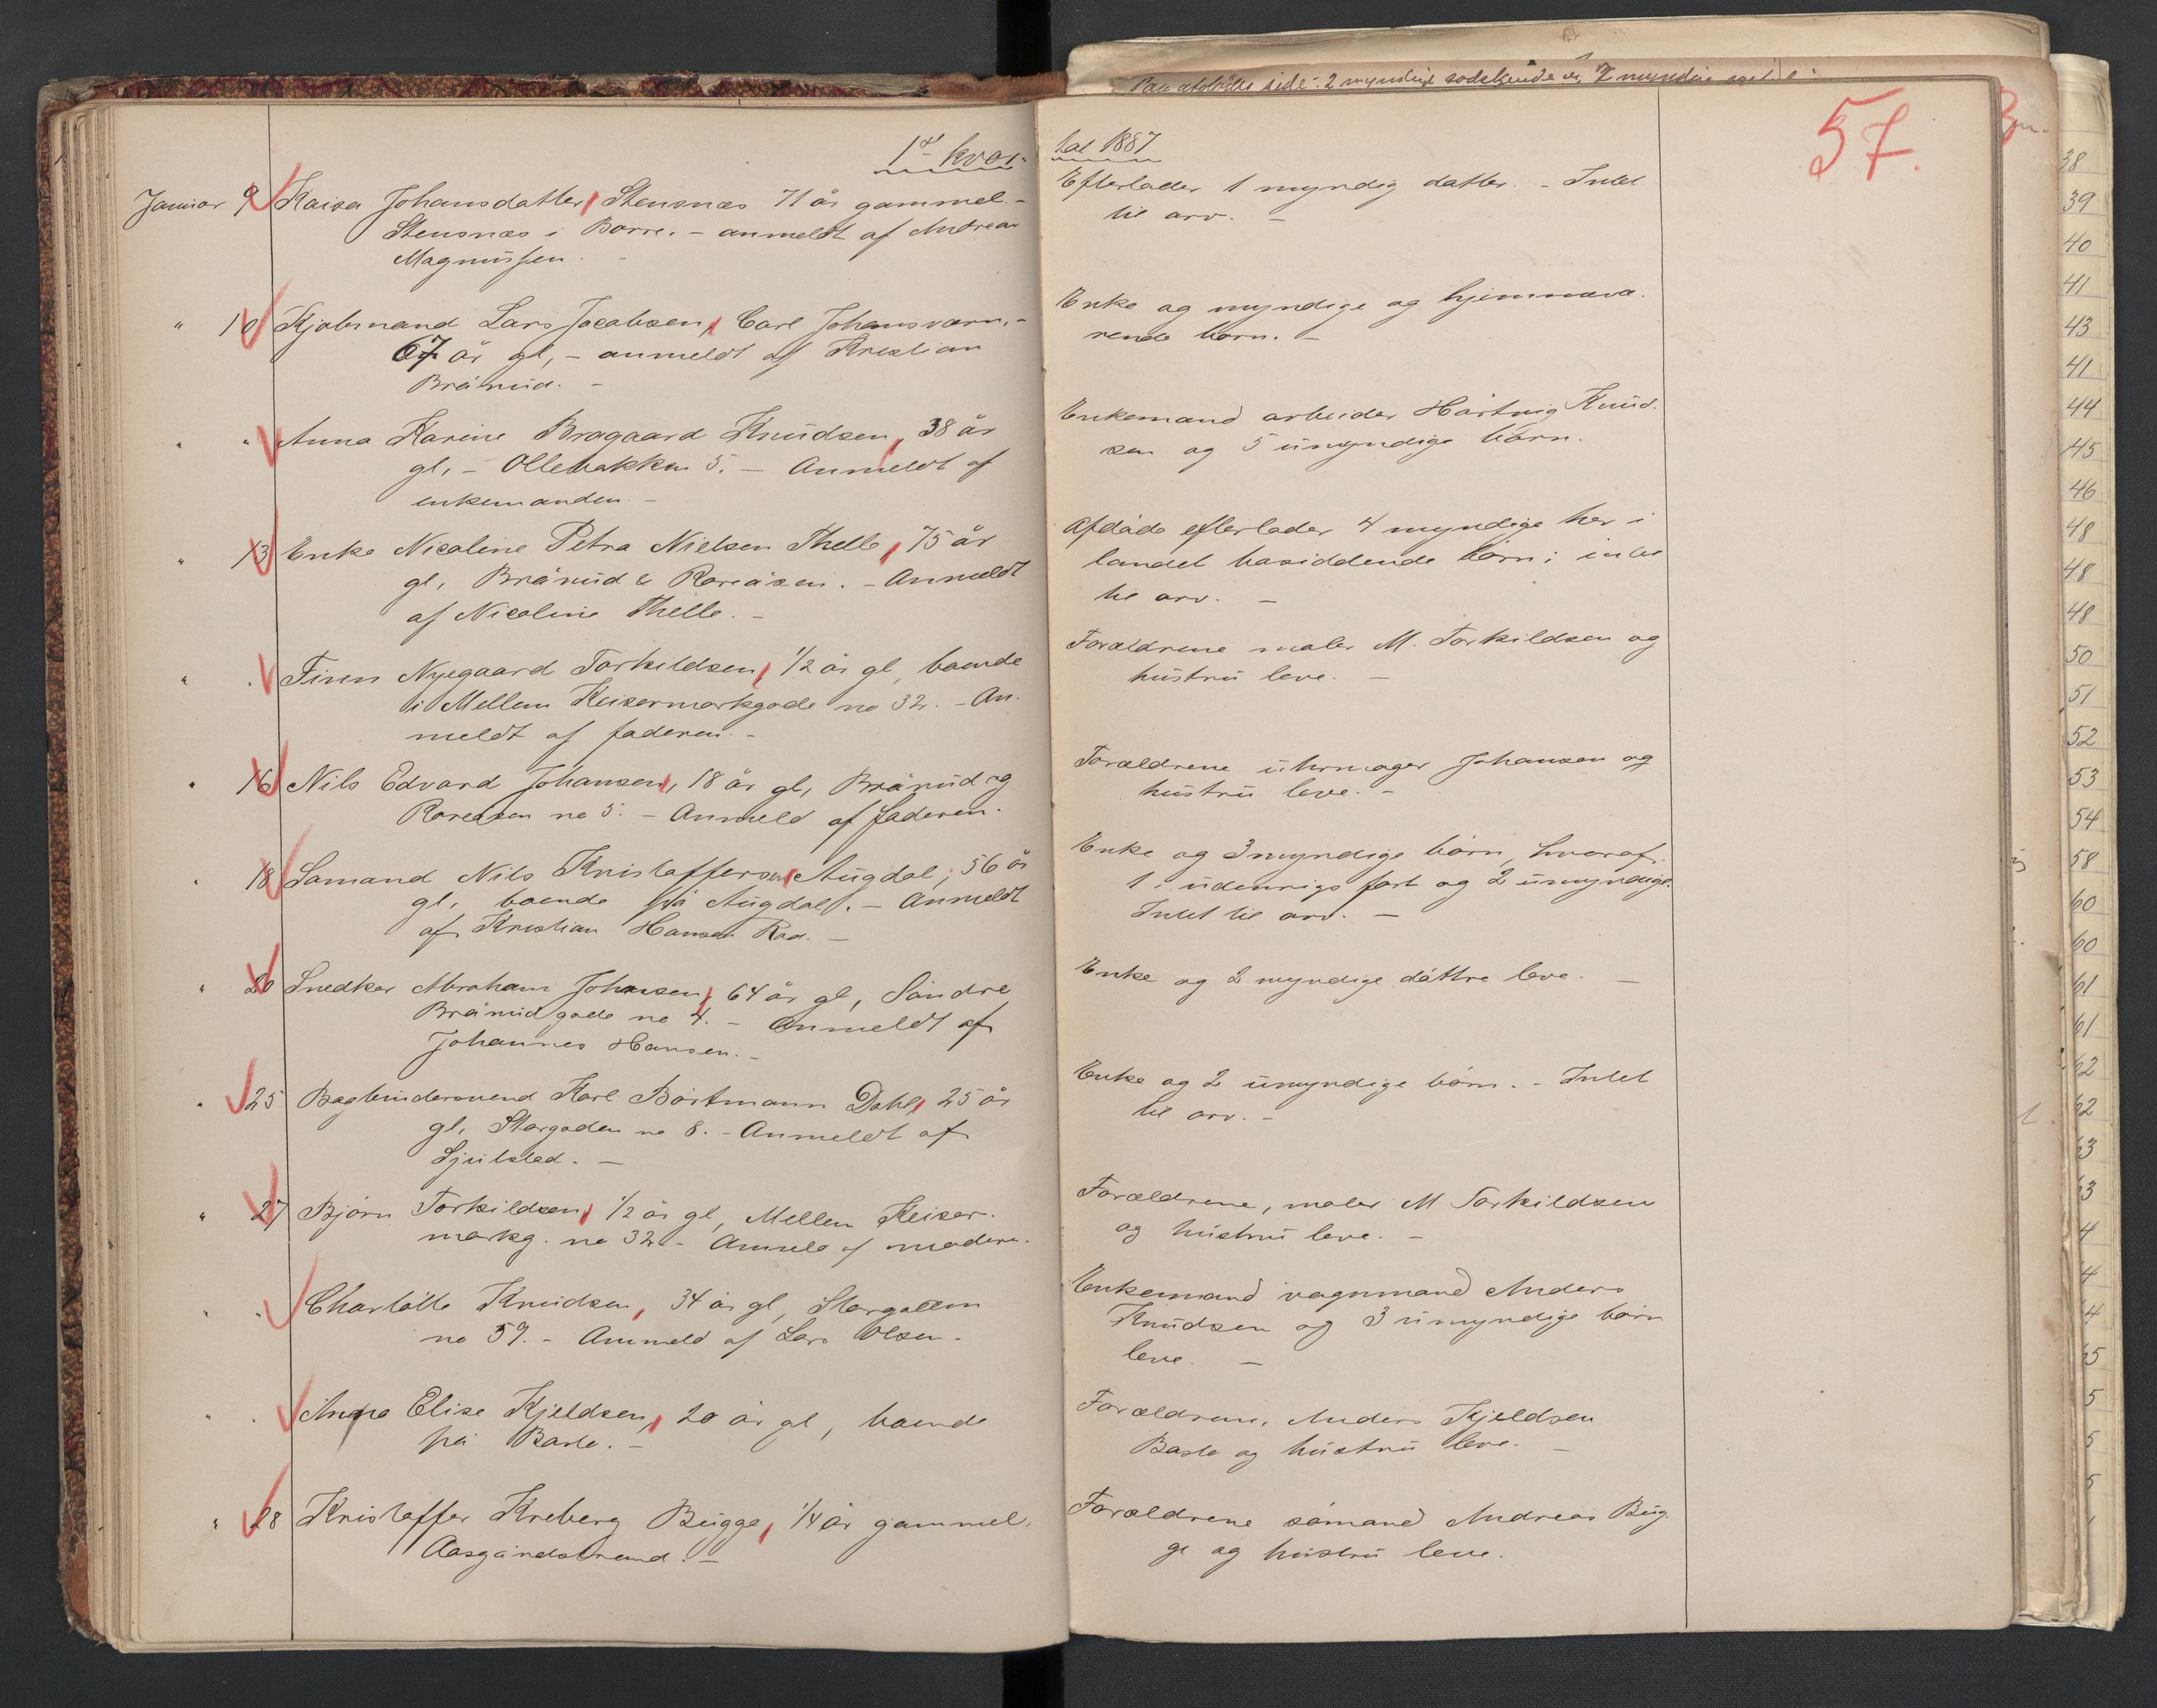 1ste kvar-
Januar 9 Kaisa Johansdatter, Stensnæs 71 år gammel. -
Stensnæs i Borre. - anmeldt af Andreas
Magnussen. -
" 10 Kjølsmand Lars Jacobsen, Carl Johansværn, -
67 år gl, - anmeldt af Kristian
Brårud. -
" " Anna Karine Bragaard Knudsen, 38 år
gl, - Ollebakken 5. - Anmeldt af
enkemanden. -
" 13 Enke Nicoline Petra Nielsen Thelle, 75 år
gl, Brårud & Roreåsen. - Anmeldt
af Nicoline Thelle. -
" " Finn Nyegaard Torkildsen, 1/2 år gl, boende
i Mellem Keisermarkgade no 32. - An-
meldt af faderen. -
" 16 Nils Edvard Johansen, 18 år gl, Brårud og
Roreåsen no 5. - Anmeld af faderen.
" 18 Sømand Nils Kristoffersen Augdal, 56 år
gl, boende på Augdal. - Anmeldt
af Kristian Hansen Rød. -
" 20 Snedker Abraham Johnsen, 64 år gl, Søndre
Brårudgade no 4. - Anmeldt af
Johannes Hansen. -
" 25 Bogbindersvend Karl Børtmann Dahl, 25 år
gl, Storgaden no 8. - Anmeldt af
Sjulstad. -
" 27 Bjørn Torkildsen, 1/2 år gl, Mellem Keiser-
markg. no 32. - Anmeld af moderen.
" " Charlotte Knudsen, 34 år gl, Storgaden
no 59. - Anmeld af Lars Olsen.
" " Anna Elise Kjeldsen, 20 år gl, boende
på Baste. -
" 28 Kristoffer Kreberg Bugge, 1/4 år gammel,
Aasgårdstrand. -
tal 1887
57.
Efterlader 1 myndig datter. - Intet
til arv. -
Enke og myndige og hjemmevæ-
rende børn. -
Enkemand arbeider Hartvig Knud-
sen og 5 umyndige børn.
Afdøde efterlader 4 myndige her i
landet bosiddende børn; intet
til arv. -
Forældrene maler M. Torkildsen og
hustru leve. -
Forældrene uhrmager Johansen og
hustru leve. -
Enke og 3 myndige børn, hvoraf
1 i udenrigs fart og 2 umyndige.
Intet til arv. -
Enke og 2 myndige døttre leve. -
Enke og 2 umyndige børn. - Intet
til arv. -
Forældrene, maler M Torkildsen
og hustru leve. -
Enkemand vognmand Anders
Knudsen og 3 umyndige børn
leve. -
Forældrene, Anders Kjeldsen
Baste og hustru leve. -
Forældrene sømand Andreas Bug-
ge og hustru leve.
38
39
40
41
43
41
44
45
46
48
48
48
50
51
52
53
54
58
60
60
61
61
62
62
63
63